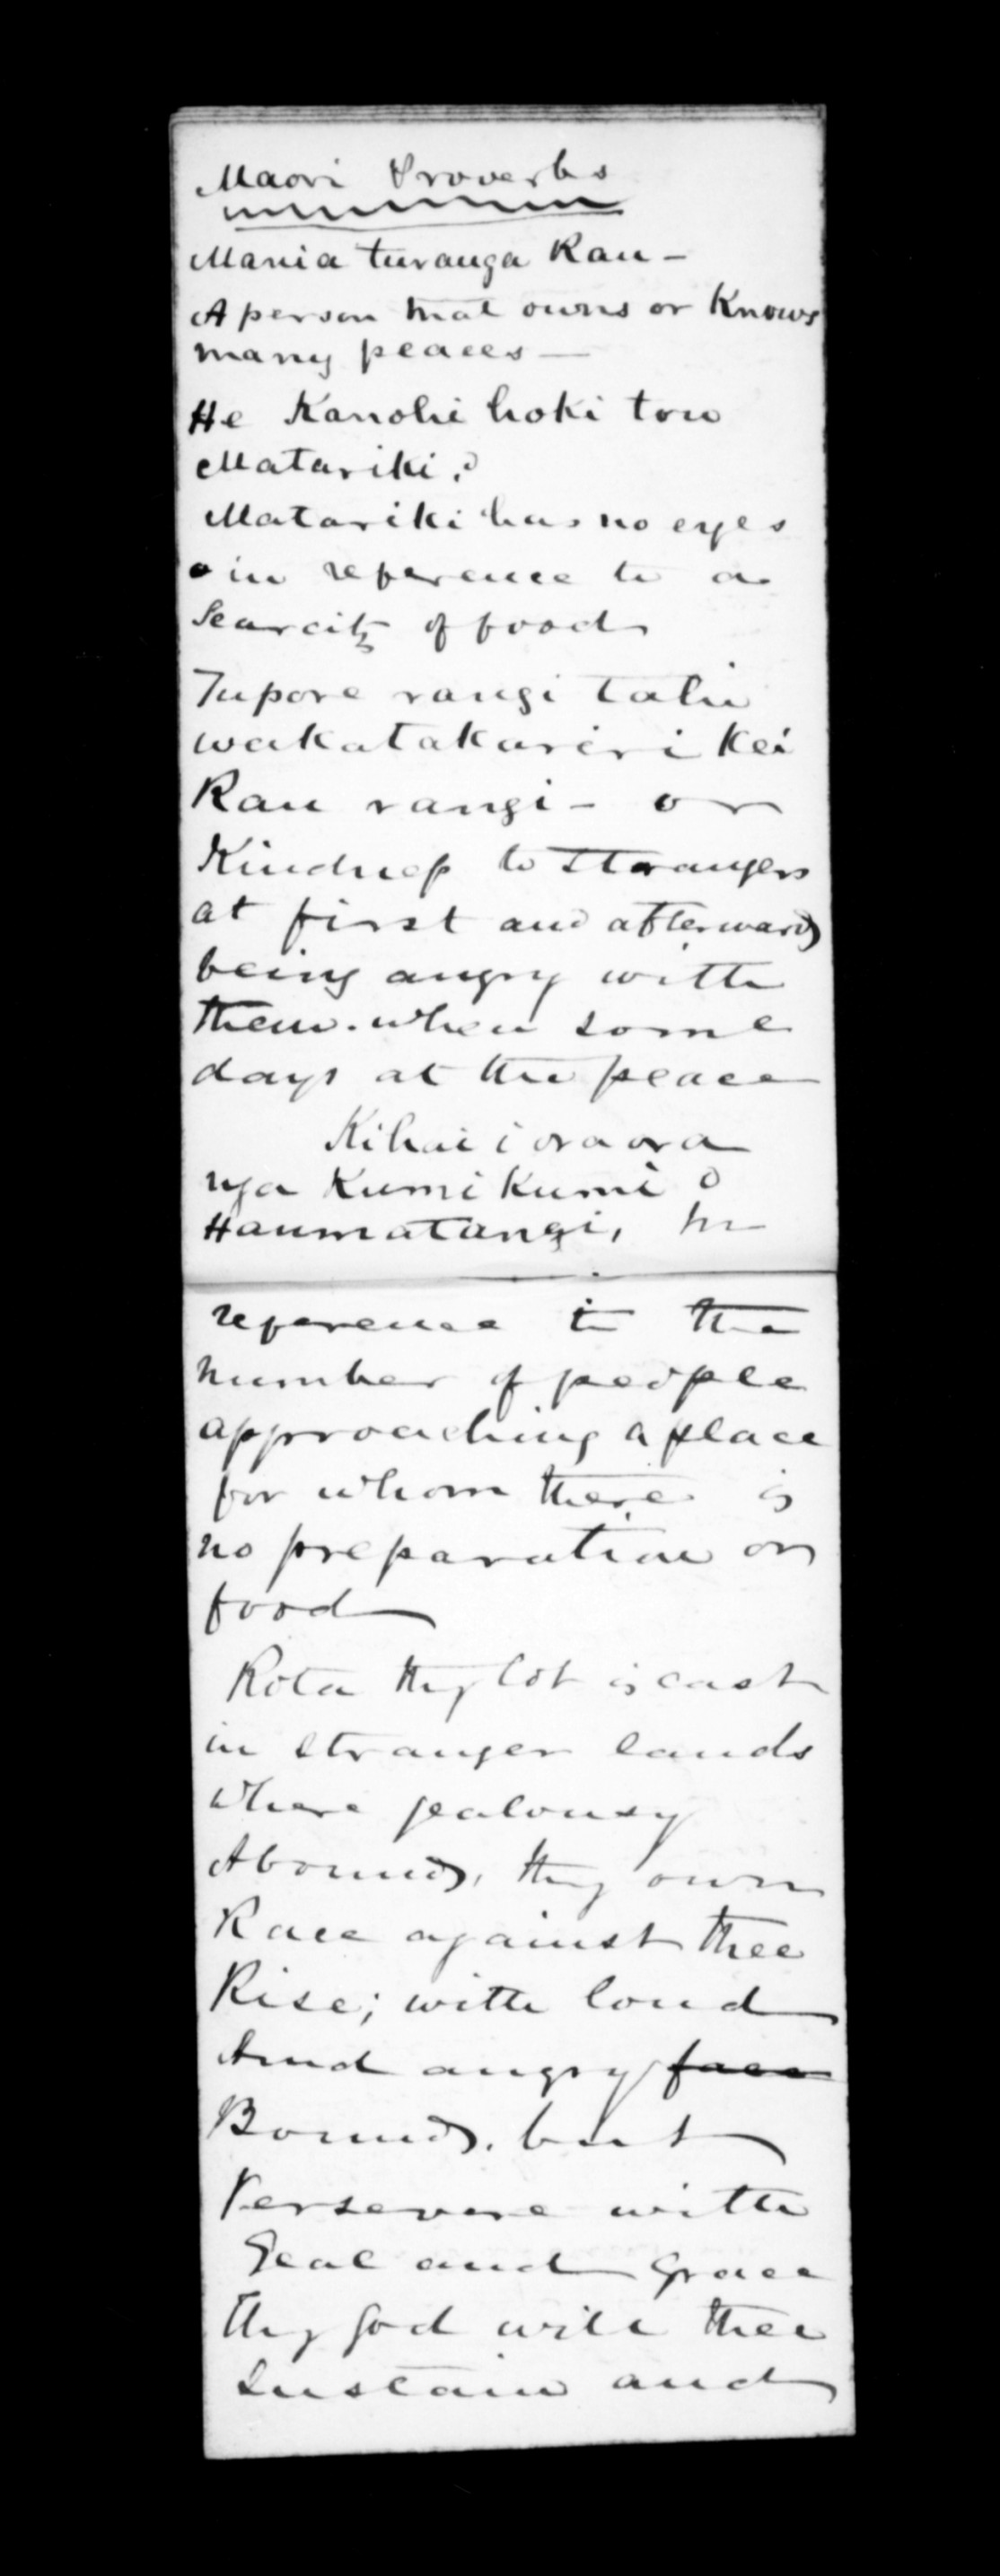 Maori Proverbs
Mania turanga Rau -
A person that owns or Knows
many places -
He Kanohi hoki tou
Matariki?
Matariki has no eyes
in reference to a
Scarcity of food
Tupore rangi tahi
wakatakariri kei
Rau rangi - or
Kindness to strangers
at first and afterwards
being angry with
them. when some
days at the place
Kihai i ora ora
nga Kumi Kumi o
Haumatangi, In
reference to the
number of people
approaching a place
for whom there is
no preparation or
food
Rota thy lot is cast
in stranger lands
Where jealousy
Abounds, thy own
Race against thee
Rise; with loud
And angry face
Bounds. but
Persevere with
Zeal and Grace
Thy God will thee
Sustain and